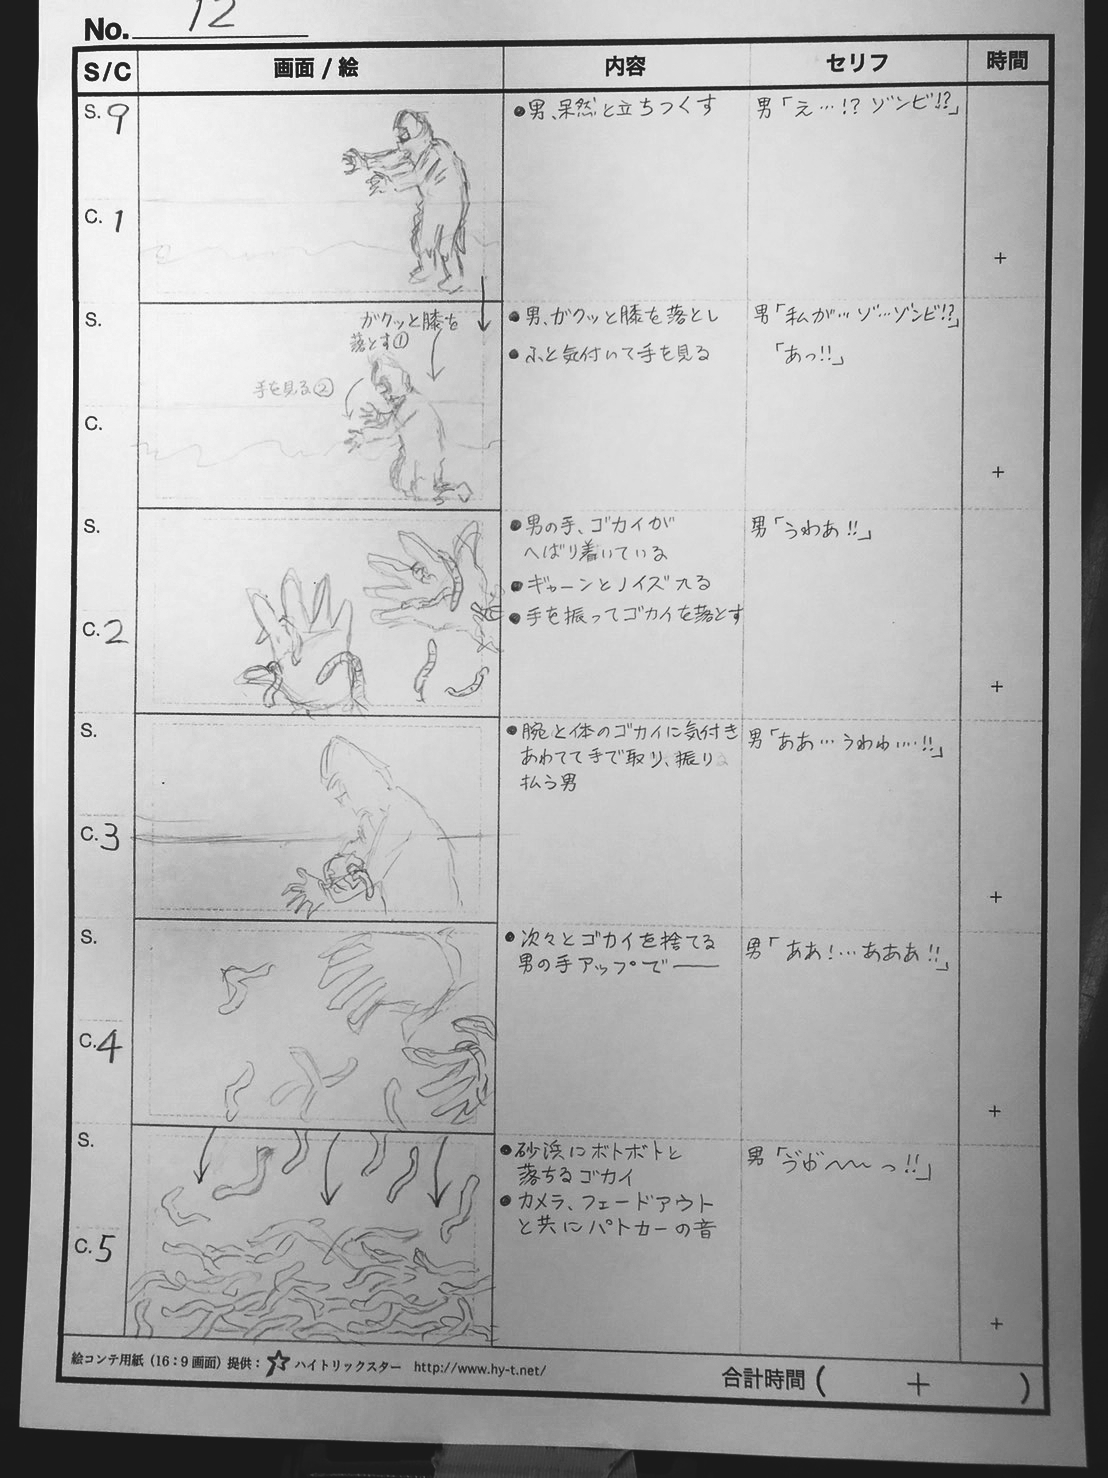 No. 12
S/C 画面/絵 内容 セリフ 時間
S. 9
C. 1
●男、呆然と立ちつくす
男「え…!? ゾンビ!?」
+
S.
C.
ガクッと膝を
落とす①
手を見る②
●男、ガクッと膝を落とし
●ふと気付いて手を見る
男「私が…ゾ…ゾンビ!?」
「あっ!!」
+
S.
C. 2
●男の手、ゴカイが
へばり着いている
●ギャーンとノイズ入る
●手を振ってゴカイを落とす
男「うわあ!!」
+
S.
C. 3
●腕と体のゴカイに気付き
あわてて手で取り、振り
払う男
男「ああ…うわゎ…!!」
+
S.
C. 4
●次々とゴカイを捨てる
男の手アップで――
男「ああ!…あああ!!」
+
S.
C. 5
●砂浜にボトボトと
落ちるゴカイ
●カメラ、フェードアウト
と共にパトカーの音
男「 〜〜っ!!」
+
絵コンテ用紙(16:9画面)提供: ハイトリックスター http://www.hy-t.net/
合計時間( + )